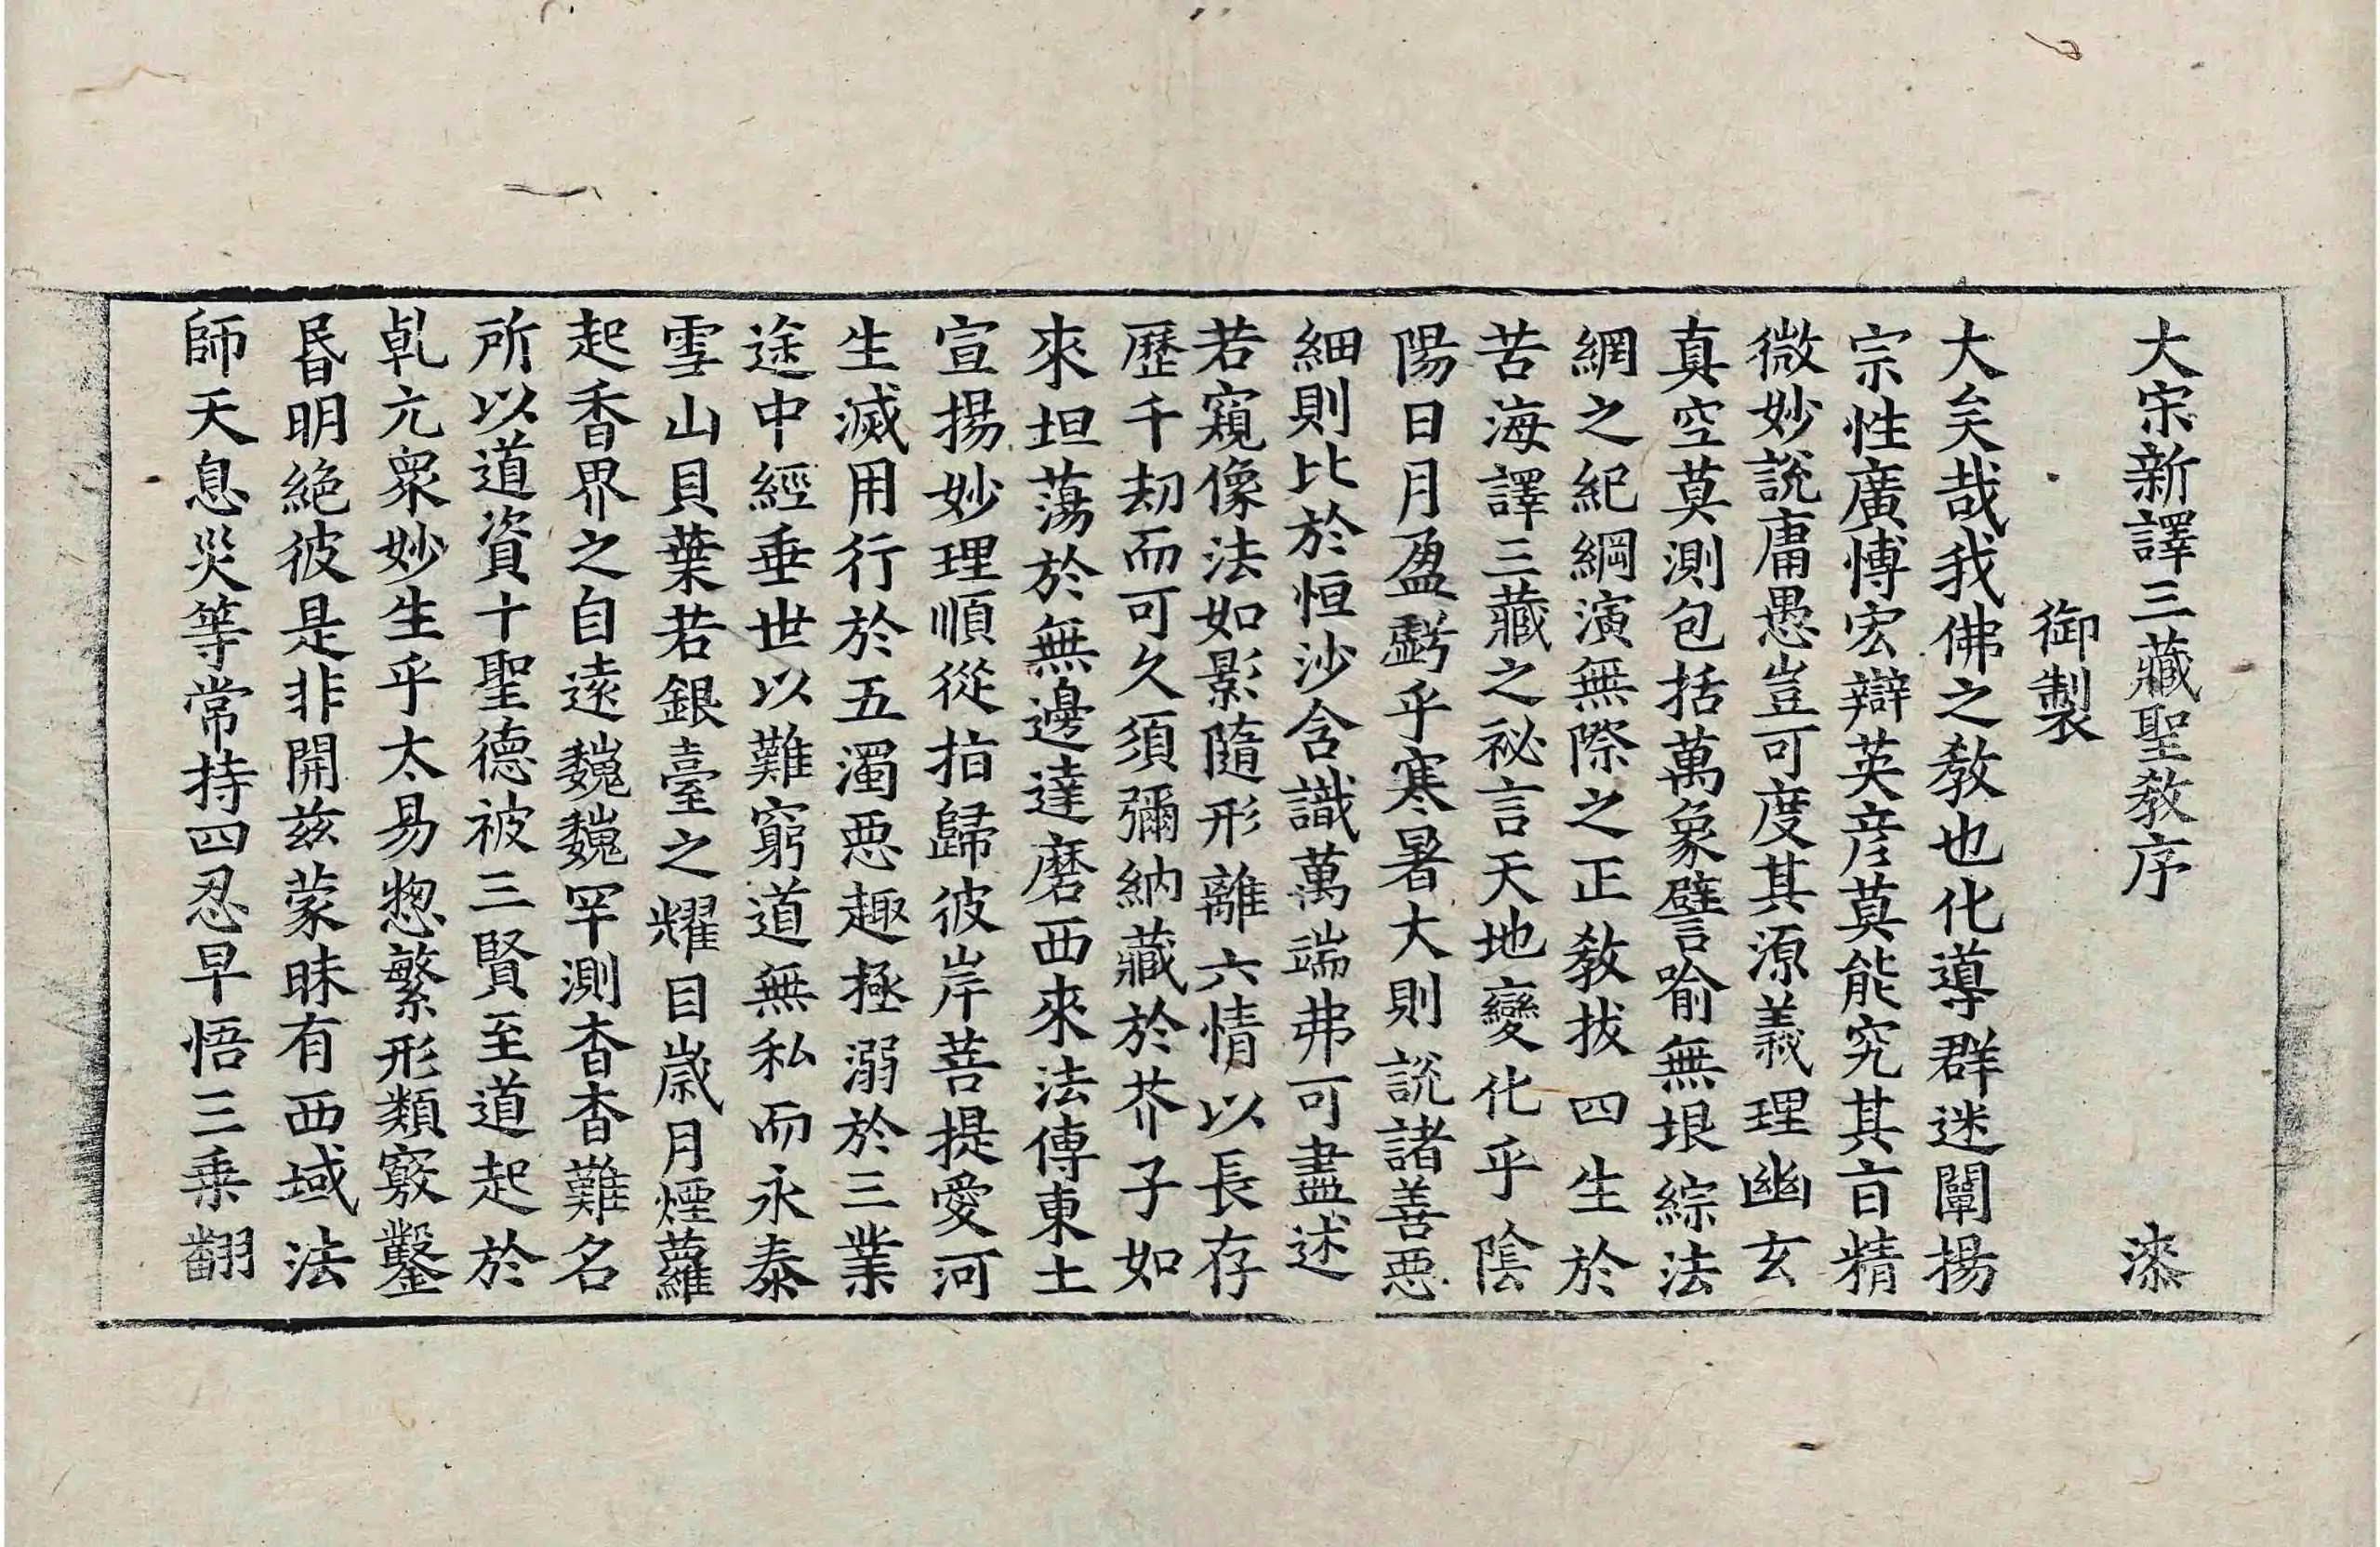 大宋新譯三藏聖教序 漆
御製
大矣哉我佛之教也化導群迷闡揚
宗性廣博宏辯英彦莫能究其㫖精
微妙說庸愚豈可度其源義理幽玄
真空莫測包括萬象譬喻無垠綜法
網之紀綱演無際之正教拔四生於
苦海譯三藏之祕言天地變化乎陰
陽日月盈虧乎寒暑大則說諸善惡
細則比於恒沙含識萬端弗可盡述
若窺像法如影隨形離六情以長存
歷千劫而可久須彌納藏於芥子如
來坦蕩於無邊達磨西來法傳東土
宣揚妙理順從指歸彼岸菩提愛河
生滅用行於五濁惡趣極溺於三業
途中經垂世以難窮道無私而永泰
雪山貝葉若銀臺之耀目歲月煙蘿
起香界之自遠巍巍罕測杳杳難名
所以道資十聖德被三賢至道起於
乹元衆妙生乎太易惣繁形類竅鑿
昬明絕彼是非開茲蒙昧有西域法
師天息災等常持四忍早悟三乗翻